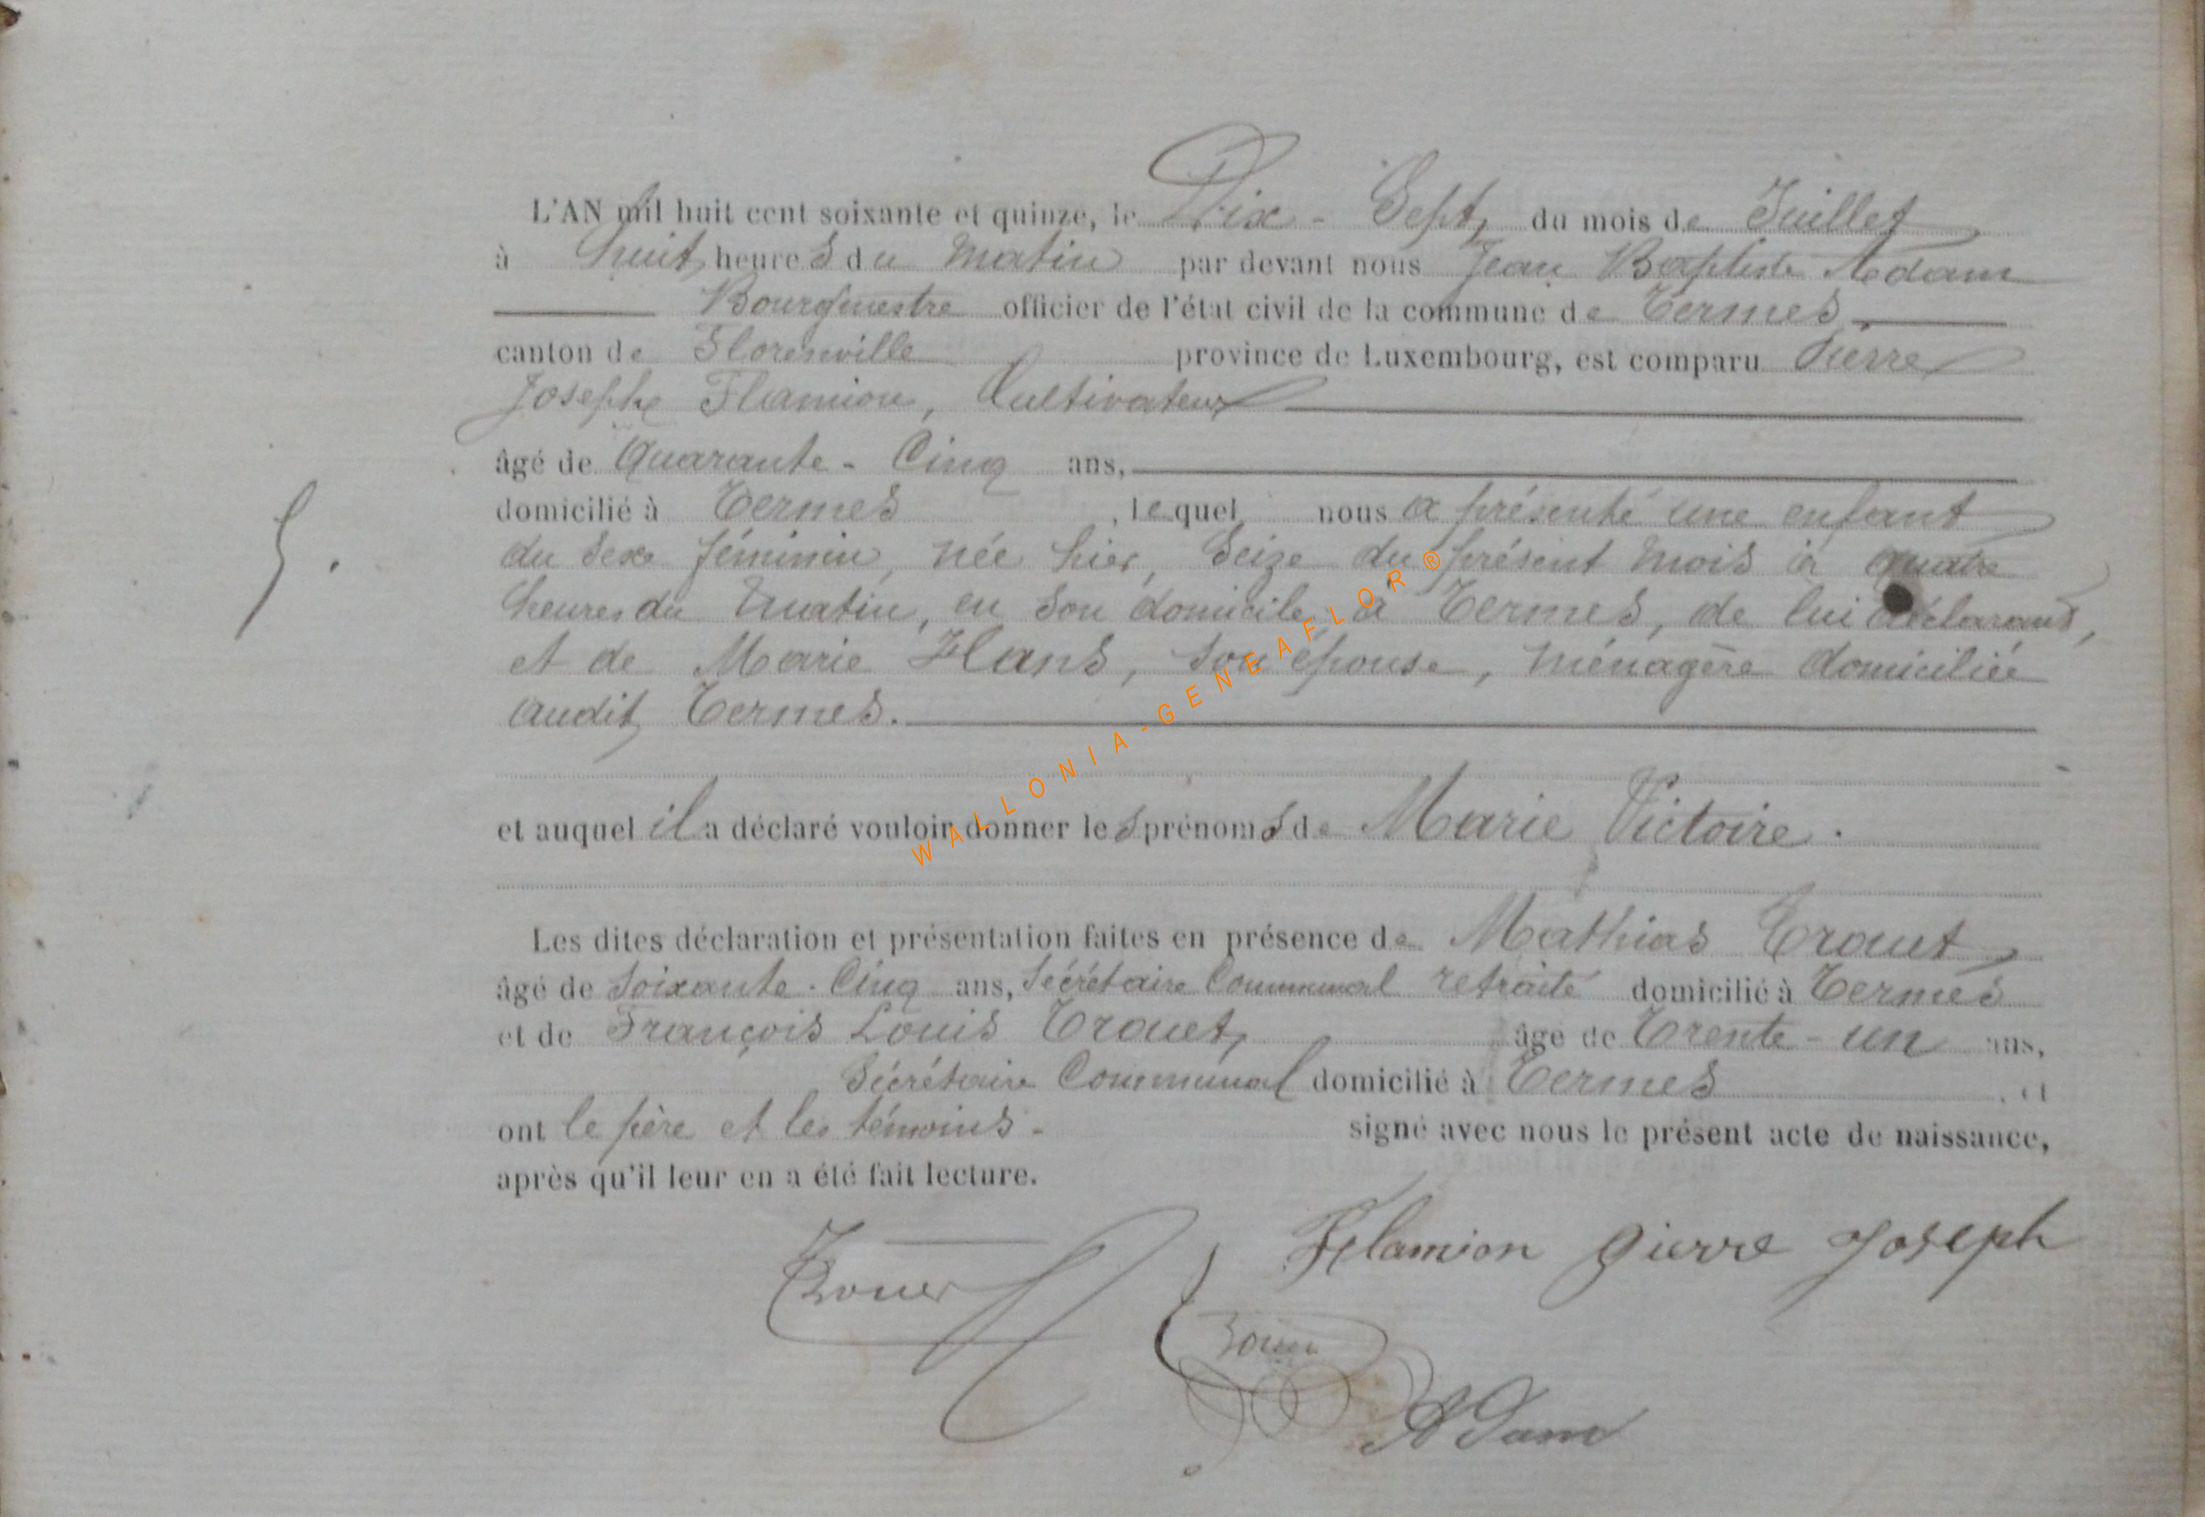 L'AN mil huit cent soixante et quinze, le Dix-Sept, du mois de Juillet
à huit heures du matin par devant nous Jean Baptiste Adam
Bourgmestre officier de l'état civil de la commune de Termes
canton de Florenville province de Luxembourg, est comparu Pierre
Joseph Flamion, Cultivateur
âgé de Quarante-Cinq ans,
domicilié à Termes, lequel nous a présenté une enfant
du sexe féminin, née hier, Seize du présent mois à quatre
5.
heures du matin, en son domicile, à Termes, de lui déclarant,
et de Marie Hans, son épouse, ménagère domiciliée
audit Termes.
et auquel il a déclaré vouloir donner les prénoms de Marie Victoire.
Les dites déclaration et présentation faites en présence de Mathias Trouet,
âgé de soixante-Cinq ans, Sécrétaire Communal retraité domicilié à Termes
et de François Louis Trouet, âgé de Trente-un ans,
Sécrétaire Communal domicilié à Termes, et
ont le père et les témoins. signé avec nous le présent acte de naissance,
après qu'il leur en a été fait lecture.
Flamion Pierre Joseph
Trouet
Adam
WALLONIA-GENEAFLOR®